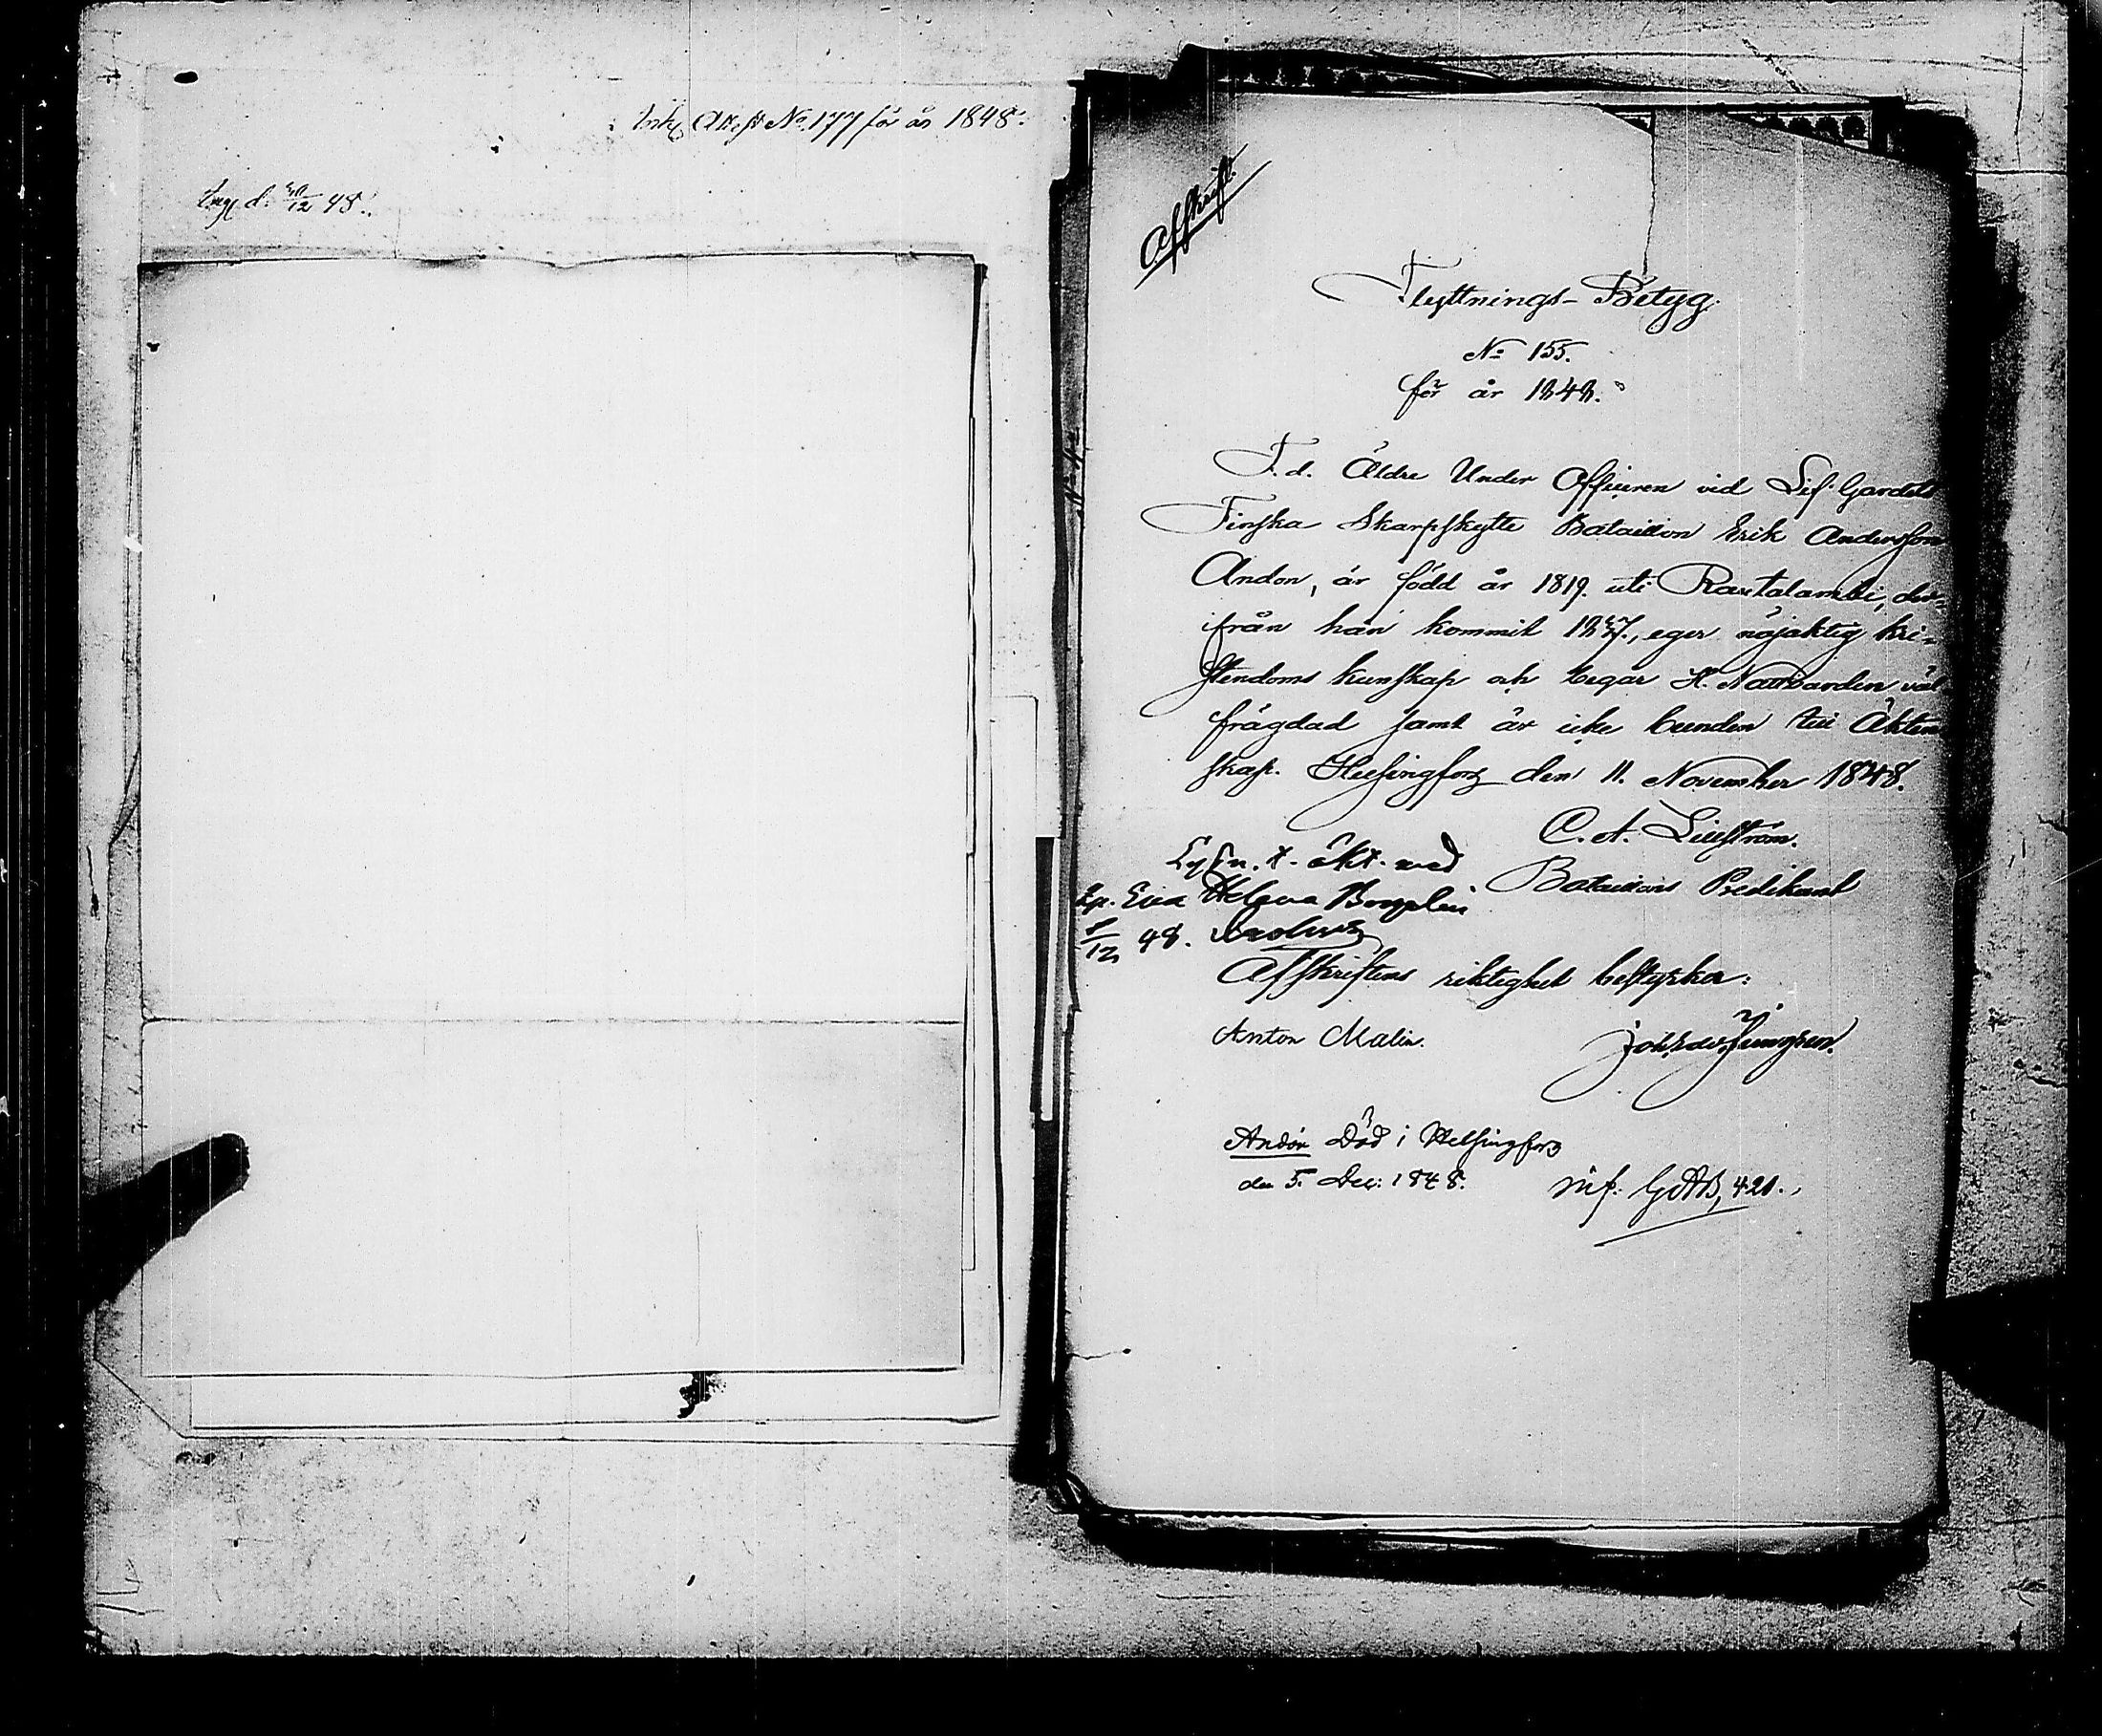 Attest No 177 för år 1848.
d. 30/12 48.
Afskrift.
Flyttnings-Betyg.
No 155.
för år 1848.
F. d. Äldre Under Officeren vid Lif-Gardets
Finska Skarpskytte Bataillon Erik Andersson
Andon, är född år 1819. uti Rautalambi, der-
ifrån han kommit, eger nöjaktig kri-
stendoms kunskap och begår H. Nattvarden väl
frägdad samt är icke bunden till Äkten
skap. Helsingfors den 11. November 1848.
C. A.
Bataillons Predikant
Lysn. t. äkt. med
Eva Helena
/12 48.
Afskriftens riktighet bestyrker:
Anton Malin.
Andon Död i Helsingfors
den 5. Dec: 1848.
421.